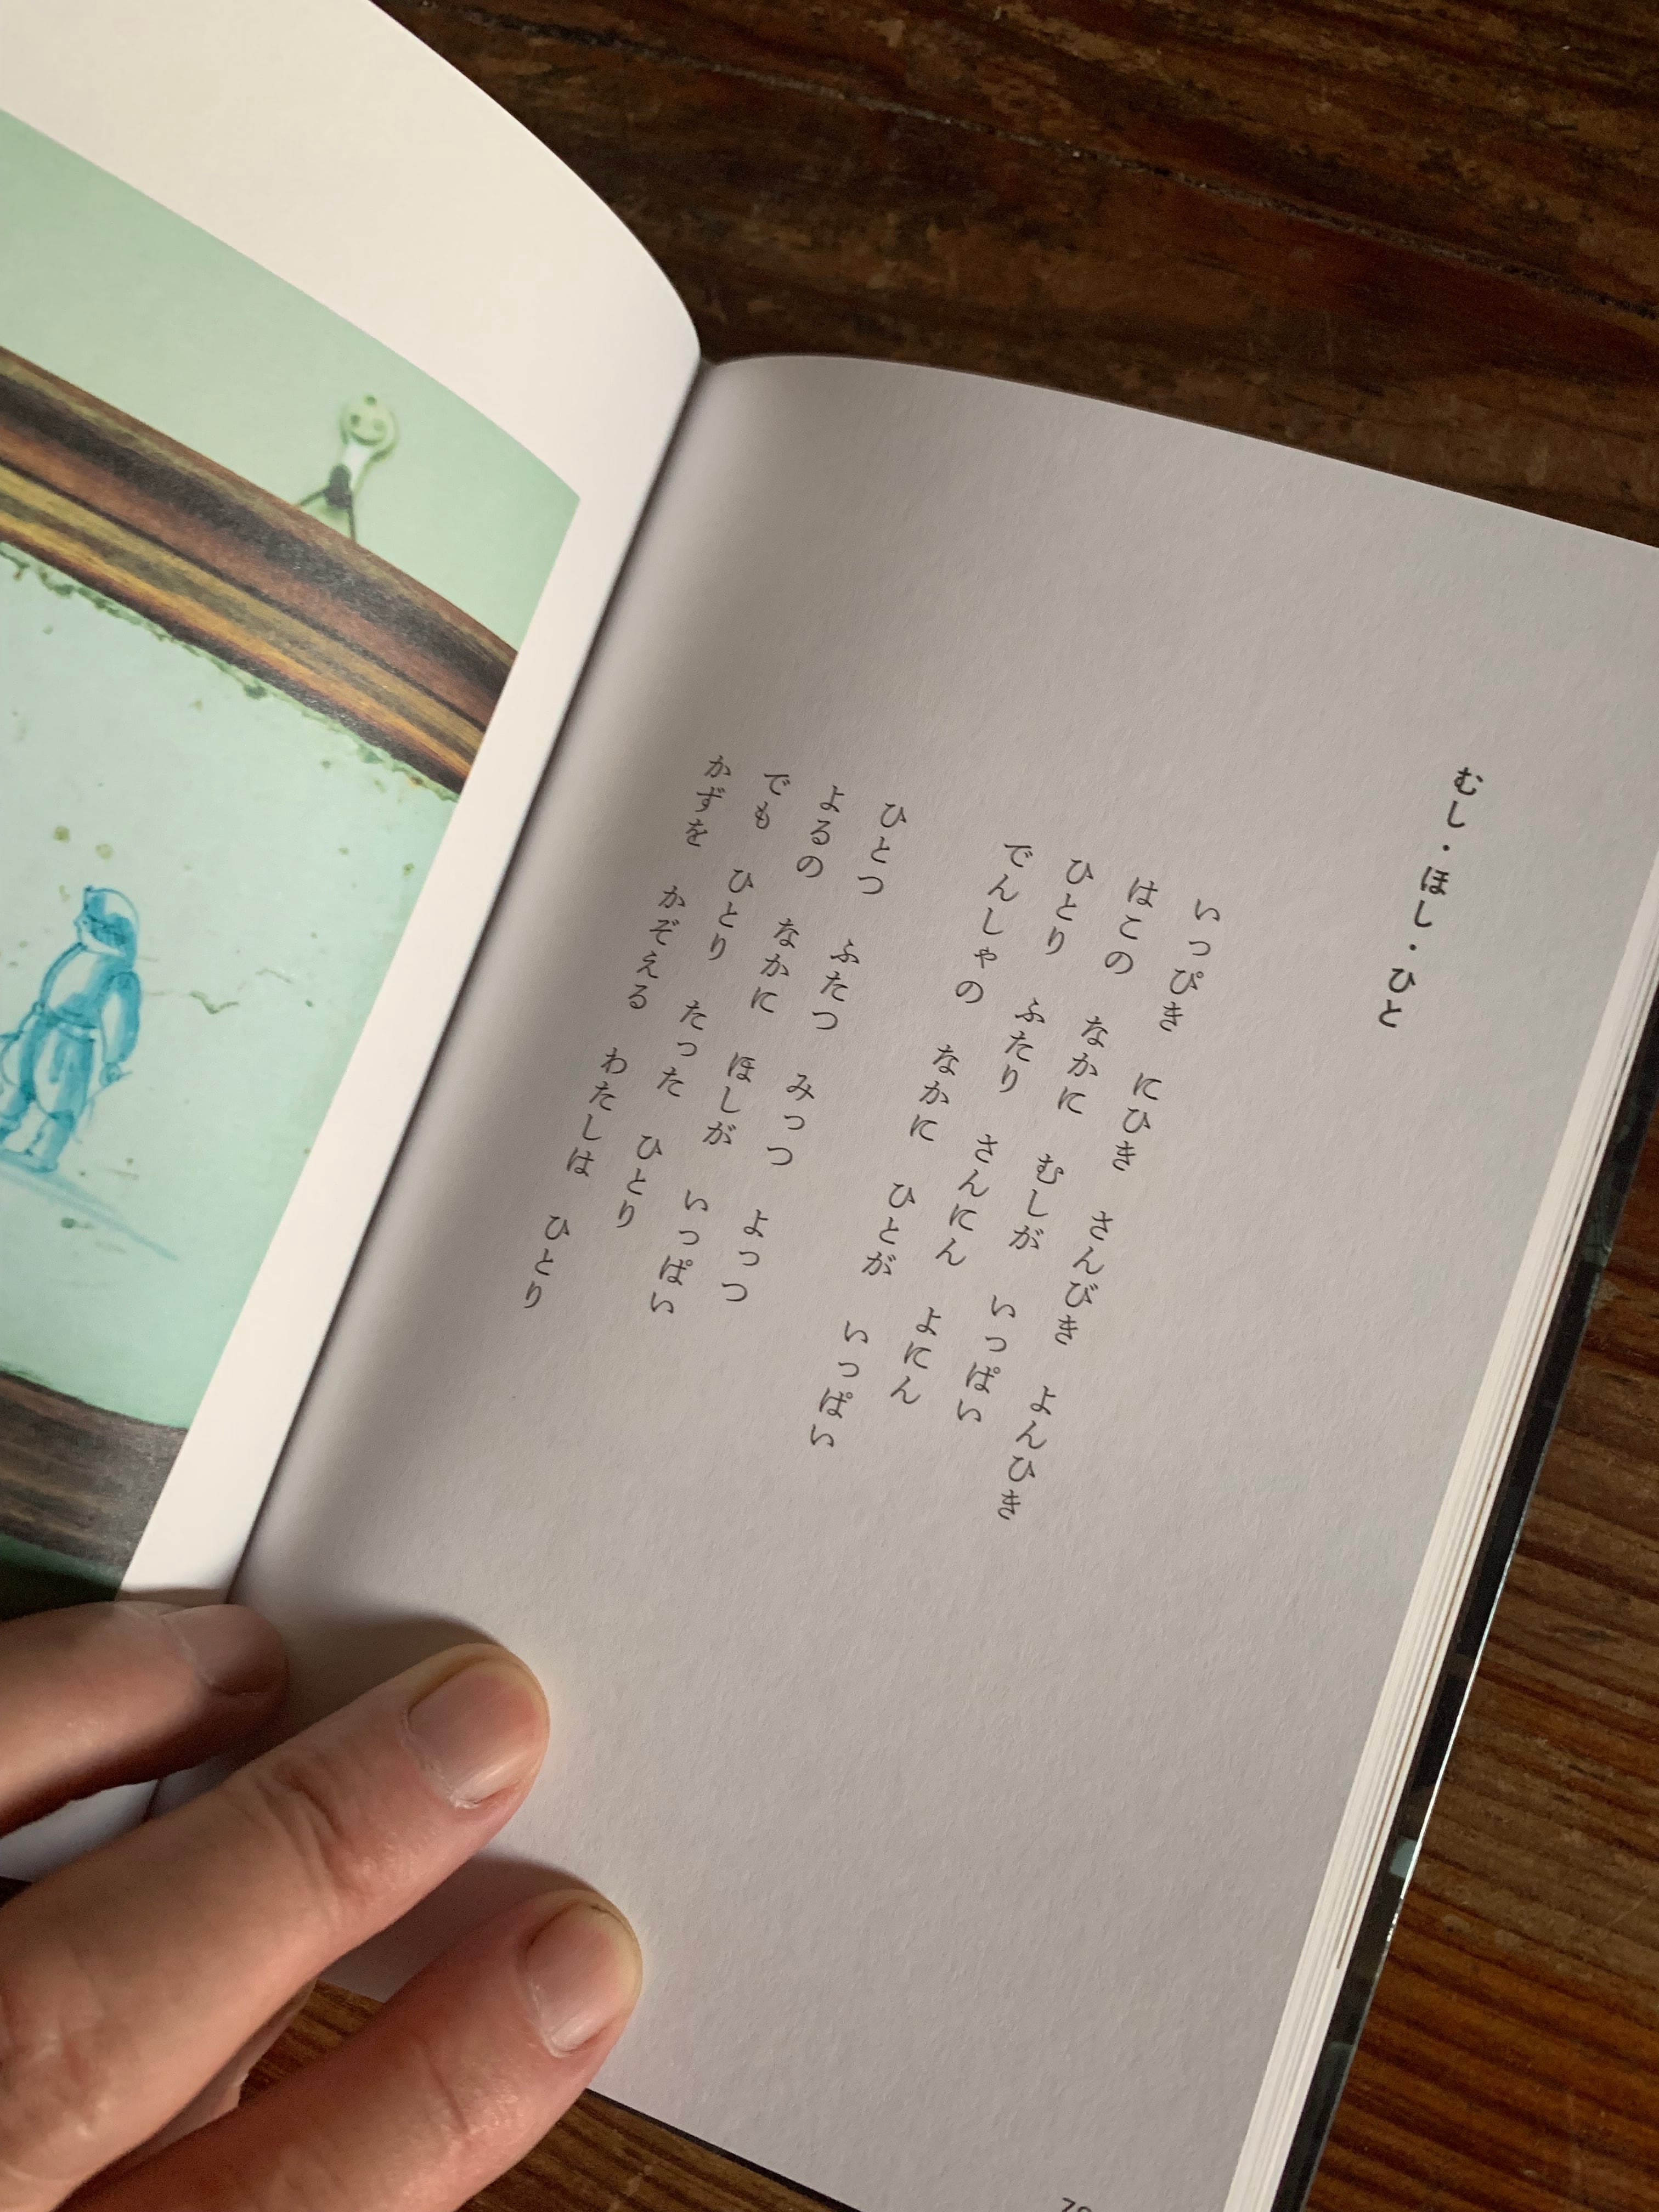 むし・ほし・ひと
いっぴき　にひき　さんびき　よんひき
はこの　なかに　むしが　いっぱい
ひとり　ふたり　さんにん　よにん
でんしゃの　なかに　ひとが　いっぱい
ひとつ　ふたつ　みっつ　よっつ
よるの　なかに　ほしが　いっぱい
でも　ひとり　たった　ひとり
かずを　かぞえる　わたしは　ひとり